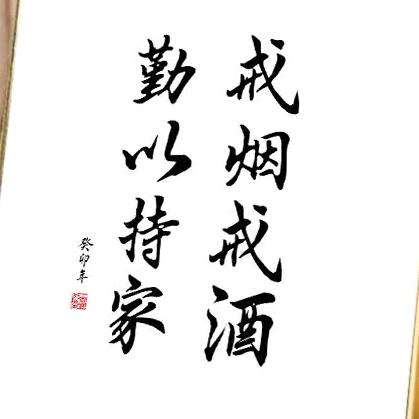 戒烟戒酒
勤以持家
癸卯年